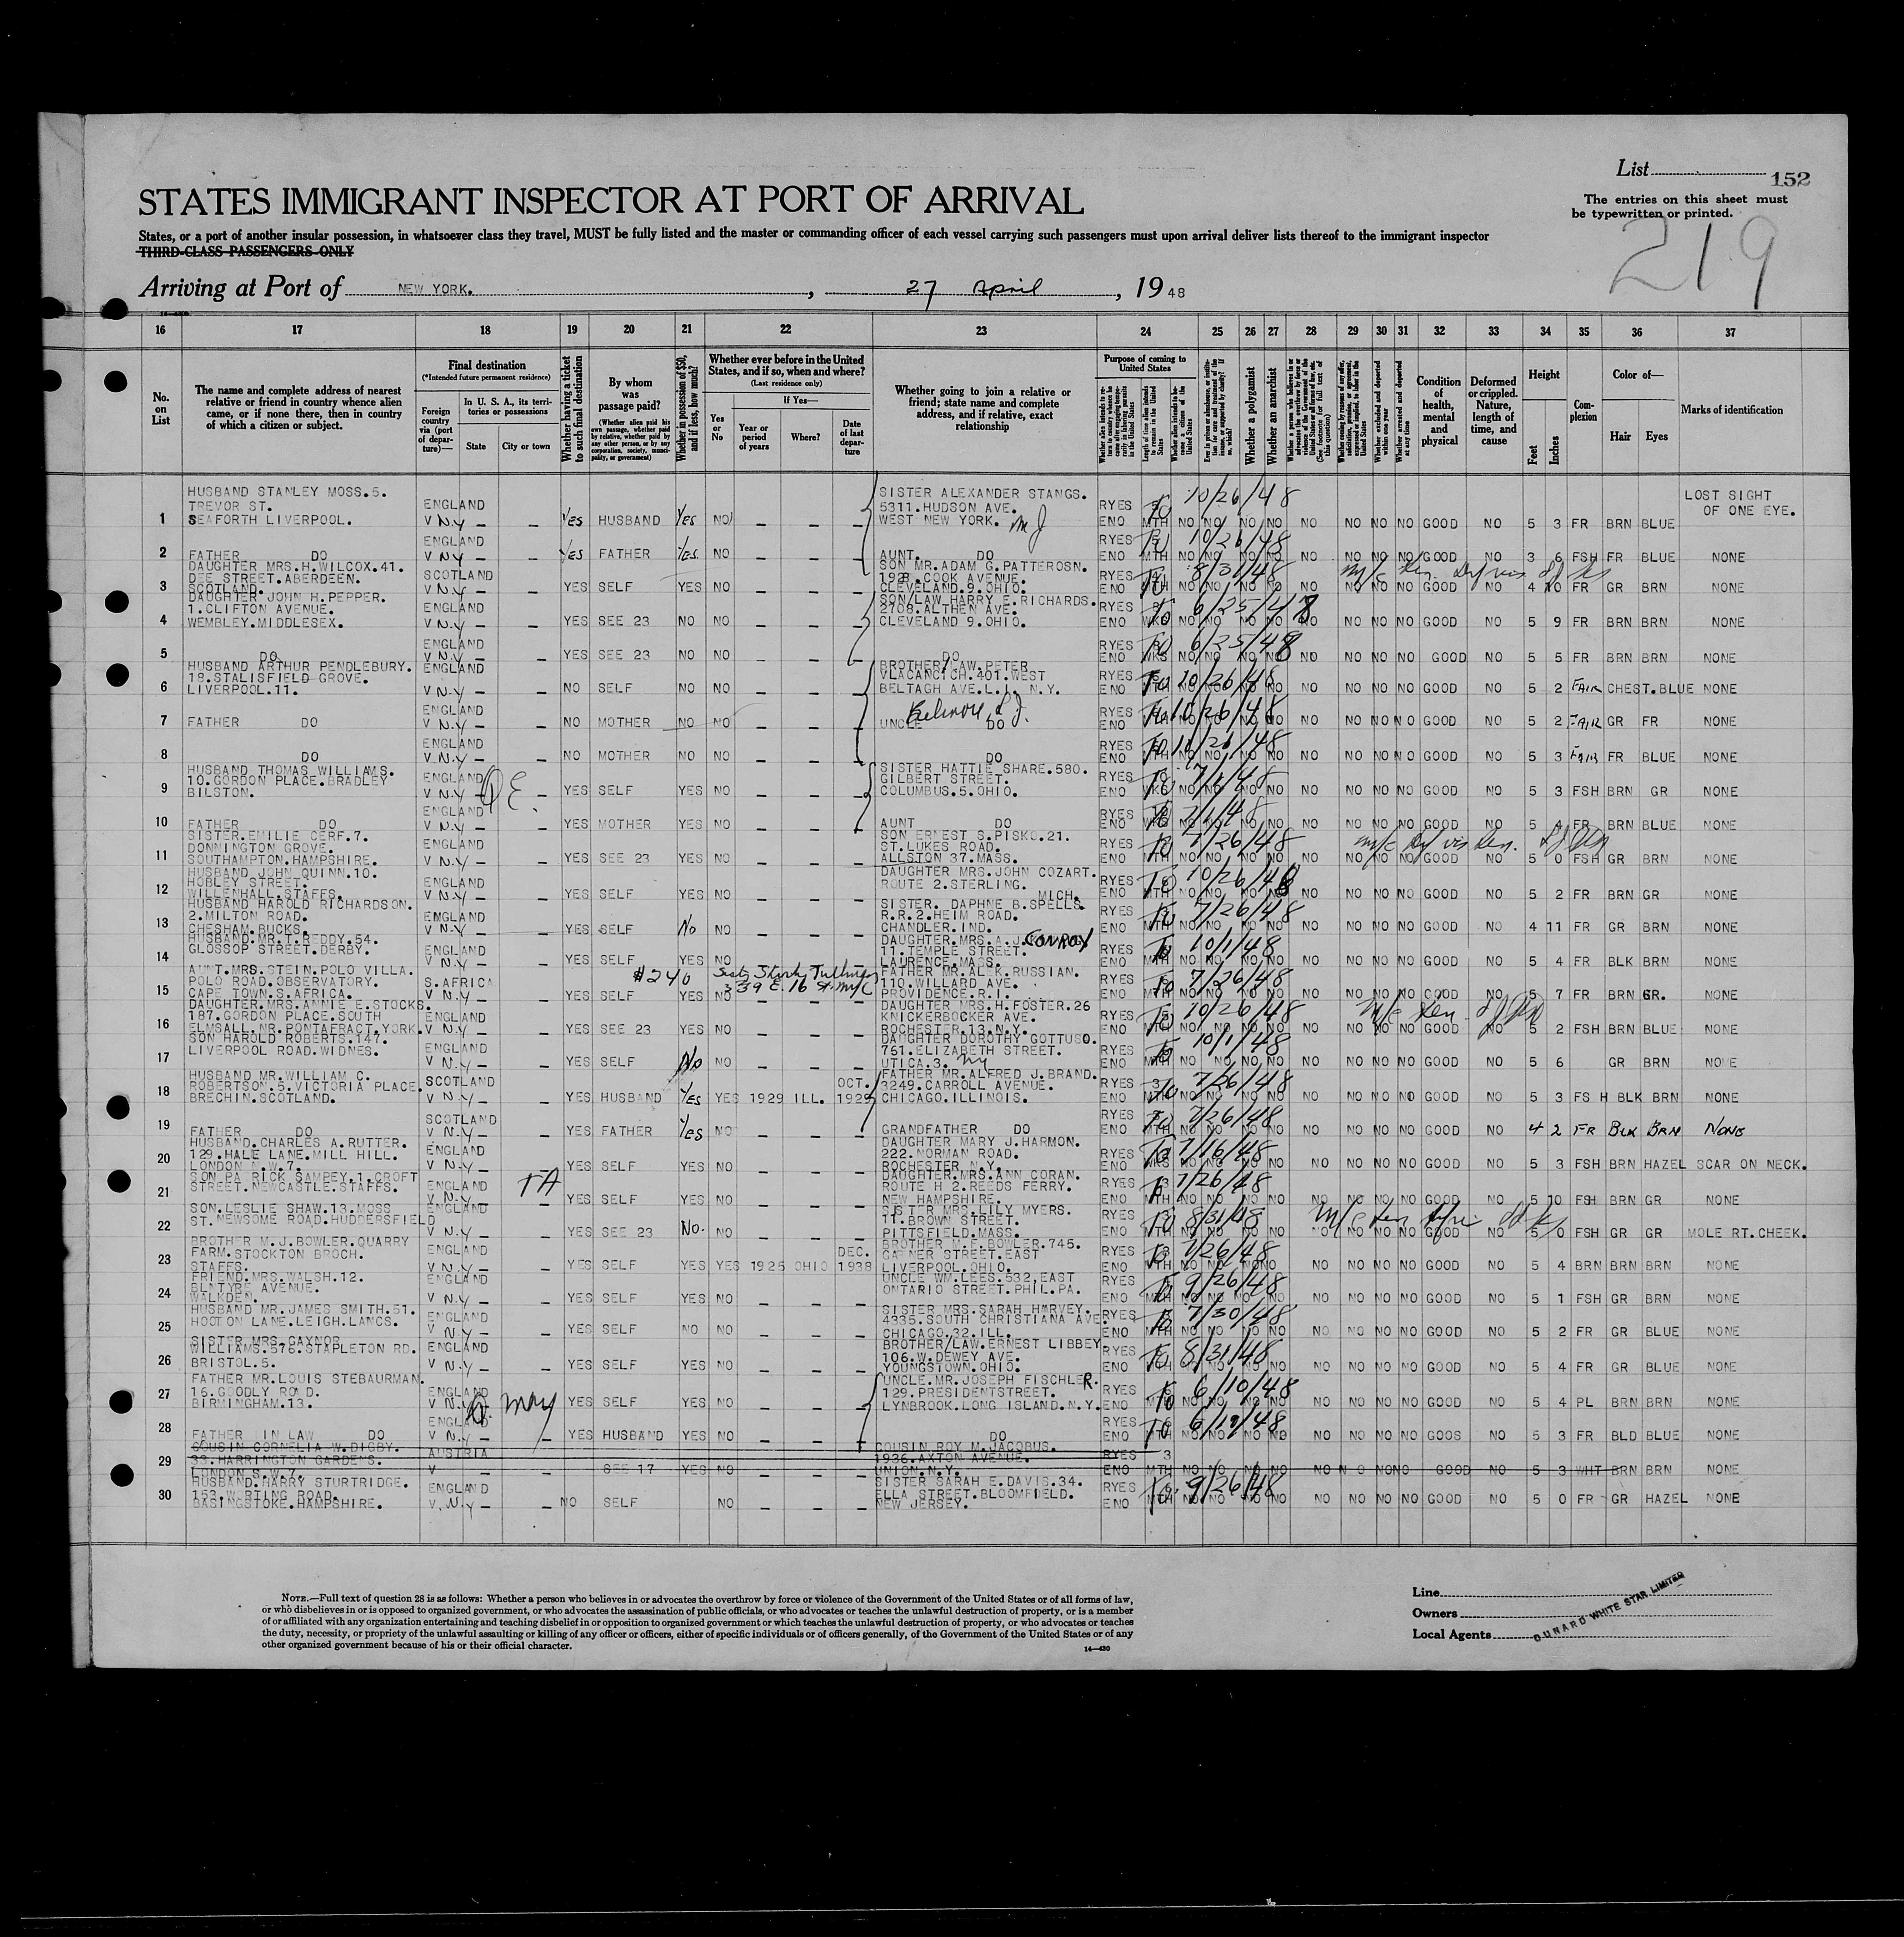 List
152
The entries on this sheet must
be typewritten or printed.
219
STATES IMMIGRANT INSPECTOR AT PORT OF ARRIVAL
States, or a port of another insular possession, in whatsoever class they travel, MUST be fully listed and the master or commanding officer of each vessel carrying such passengers must upon arrival deliver lists thereof to the immigrant inspector
THIRD-CLASS PASSENGERS ONLY
Arriving at Port of NEW YORK. , 27 April , 19 48
16 17 18 19 20 21 22 23 24 25 26 27 28 29 30 31 32 33 34 35 36 37
No. on List
The name and complete address of nearest relative or friend in country whence alien came, or if none there, then in country of which a citizen or subject.
Final destination
(*Intended future permanent residence)
Foreign country via (port of departure)—
In U. S. A., its territories or possessions
State
City or town
Whether having a ticket to such final destination
By whom was passage paid?
(Whether alien paid his own passage, whether paid by relative, whether paid by any other person, or by any corporation, society, municipality, or government)
Whether in possession of $50, and if less, how much?
Whether ever before in the United States, and if so, when and where?
(Last residence only)
Yes or No
If Yes—
Year or period of years
Where?
Date of last departure
Whether going to join a relative or friend; state name and complete address, and if relative, exact relationship
Purpose of coming to United States
Whether a polygamist
Whether an anarchist
Condition of health, mental and physical
Deformed or crippled. Nature, length of time, and cause
Height
Feet
Inches
Complexion
Color of—
Hair
Eyes
Marks of identification
1 HUSBAND STANLEY MOSS.5. TREVOR ST. SEAFORTH LIVERPOOL. ENGLAND V N.Y — — Yes HUSBAND Yes NO — — — SISTER ALEXANDER STANGS. 5311.HUDSON AVE. WEST NEW YORK. RYES ENO MTH 10/26/48 NO NO NO NO NO NO NO NO GOOD NO 5 3 FR BRN BLUE LOST SIGHT OF ONE EYE.
2 FATHER DO ENGLAND V N Y — — Yes FATHER Yes. NO — — — AUNT. DO RYES ENO MTH 10/26/48 NO NO NO NO NO NO NO NO GOOD NO 3 6 FSH FR BLUE NONE
3 DAUGHTER MRS.H.WILCOX.41. DEE STREET.ABERDEEN. SCOTLAND. SCOTLAND V N.Y — — YES SELF YES NO — — — SON MR.ADAM G.PATTEROSN. 1928.COOK AVENUE. CLEVELAND.9.OHIO. RYES ENO MTH 8/31/48 NO NO NO NO NO NO NO NO GOOD NO 4 10 FR GR BRN NONE
4 DAUGHTER JOHN H.PEPPER. 1.CLIFTON AVENUE. WEMBLEY.MIDDLESEX. ENGLAND V N.Y — — YES SEE 23 NO NO — — — SON/LAW HARRY E.RICHARDS. 2708.ALTHEN AVE. CLEVELAND 9.OHIO. RYES ENO WKS 6/25/48 NO NO NO NO NO NO NO NO GOOD NO 5 9 FR BRN BRN NONE
5 DO ENGLAND V N.Y — — YES SEE 23 NO NO — — — DO RYES ENO WKS 6/25/48 NO NO NO NO NO NO NO NO GOOD NO 5 5 FR BRN BRN NONE
6 HUSBAND ARTHUR PENDLEBURY. 18.STALISFIELD GROVE. LIVERPOOL.11. ENGLAND V N.Y — — NO SELF NO NO — — — BROTHER/LAW.PETER VLACANCICH.401.WEST BELTAGH AVE.L.I. N.Y. RYES ENO 10/26/48 NO NO NO NO NO NO NO NO GOOD NO 5 2 FAIR CHEST.BLUE NONE
7 FATHER DO ENGLAND V N.Y — — NO MOTHER NO NO — — — UNCLE DO RYES ENO 10/26/48 NO NO NO NO NO NO NO NO GOOD NO 5 2 FAIR GR FR NONE
8 DO ENGLAND V N.Y — — NO MOTHER NO NO — — — DO RYES ENO 10/26/48 NO NO NO NO NO NO NO NO GOOD NO 5 3 FAIR FR BLUE NONE
9 HUSBAND THOMAS WILLIAMS. 10.GORDON PLACE.BRADLEY BILSTON. ENGLAND V N.Y — — YES SELF YES NO — — — SISTER HATTIE SHARE.580. GILBERT STREET. COLUMBUS.5.OHIO. RYES ENO WKS 7/1/48 NO NO NO NO NO NO NO NO GOOD NO 5 3 FSH BRN GR NONE
10 FATHER DO ENGLAND V N.Y — — YES MOTHER YES NO — — — AUNT DO RYES ENO WKS 7/1/48 NO NO NO NO NO NO NO NO GOOD NO 5 4 FR BRN BLUE NONE
11 SISTER.EMILIE CERF.7. DONNINGTON GROVE. SOUTHAMPTON.HAMPSHIRE. ENGLAND V N.Y — — YES SEE 23 YES NO — — — SON ERNEST S.PISKO.21. ST.LUKES ROAD. ALLSTON 37.MASS. RYES ENO MTH 7/26/48 NO NO NO NO NO NO NO NO GOOD NO 5 0 FSH GR BRN NONE
12 HUSBAND JOHN QUINN.10. HOBLEY STREET. WILLENHALL.STAFFS. ENGLAND V N.Y — — YES SELF YES NO — — — DAUGHTER MRS.JOHN COZART. ROUTE 2.STERLING. MICH. RYES ENO MTH 10/26/48 NO NO NO NO NO NO NO NO GOOD NO 5 2 FR BRN GR NONE
13 HUSBAND HAROLD RICHARDSON. 2.MILTON ROAD. CHESHAM.BUCKS. ENGLAND V N.Y — — YES SELF No NO — — — SISTER. DAPHNE B.SPELLS. R.R.2.HEIM ROAD. CHANDLER.IND. RYES ENO MTH 7/26/48 NO NO NO NO NO NO NO NO GOOD NO 4 11 FR GR BRN NONE
14 HUSBAND.MR.T.REDDY.54. GLOSSOP STREET.DERBY. ENGLAND V N.Y — — YES SELF YES NO — — — DAUGHTER.MRS.A.J.CONROY 11.TEMPLE STREET. LAURENCE.MASS. RYES ENO MTH 10/1/48 NO NO NO NO NO NO NO NO GOOD NO 5 4 FR BLK BRN NONE
#240
339 E. 16 St. NYC
15 AUNT.MRS.STEIN.POLO VILLA. POLO ROAD.OBSERVATORY. CAPE TOWN.S.AFRICA. S.AFRICA V N.Y — — YES SELF YES NO — — — FATHER MR.ALEK.RUSSIAN. 110.WILLARD AVE. PROVIDENCE.R.I. RYES ENO MTH 7/26/48 NO NO NO NO NO NO NO NO GOOD NO 5 7 FR BRN GR. NONE
16 DAUGHTER.MRS.ANNIE E.STOCKS. 187.GORDON PLACE.SOUTH ELMSALL.NR.PONTAFRACT.YORK. ENGLAND V N.Y — — YES SEE 23 YES NO — — — DAUGHTER MRS.H.FOSTER.26 KNICKERBOCKER AVE. ROCHESTER.13.N.Y. RYES ENO MTH 10/26/48 NO NO NO NO NO NO NO NO GOOD NO 5 2 FSH BRN BLUE NONE
17 SON HAROLD ROBERTS.147. LIVERPOOL ROAD.WIDNES. ENGLAND V N.Y — — YES SELF No NO — — — DAUGHTER DOROTHY GOTTUSO. 761.ELIZABETH STREET. UTICA.3. NY RYES ENO MTH 10/1/48 NO NO NO NO NO NO NO NO GOOD NO 5 6 GR BRN NONE
18 HUSBAND MR.WILLIAM C. ROBERTSON.5.VICTORIA PLACE. BRECHIN.SCOTLAND. SCOTLAND V N.Y — — YES HUSBAND Yes YES 1929 ILL. OCT. 1929 FATHER MR.ALFRED J.BRAND. 3249.CARROLL AVENUE. CHICAGO.ILLINOIS. RYES ENO 3 MTH 7/26/48 NO NO NO NO NO NO NO NO GOOD NO 5 3 FS H BLK BRN NONE
19 FATHER DO SCOTLAND V N.Y — — YES FATHER Yes NO — — — GRANDFATHER DO RYES ENO MTH 7/26/48 NO NO NO NO NO NO NO NO GOOD NO 4 2 FR BLK BRN NONE
20 HUSBAND.CHARLES A.RUTTER. 129.HALE LANE.MILL HILL. LONDON N.W.7. ENGLAND V N.Y — — YES SELF YES NO — — — DAUGHTER MARY J.HARMON. 222.NORMAN ROAD. ROCHESTER N.Y. RYES ENO WKS 7/16/48 NO NO NO NO NO NO NO NO GOOD NO 5 3 FSH BRN HAZEL SCAR ON NECK.
21 SON PATRICK SAMPEY.1.CROFT STREET.NEWCASTLE.STAFFS. ENGLAND V N.Y — — YES SELF YES NO — — — DAUGHTER.MRS.ANN CORAN. ROUTE H 2.REEDS FERRY. NEW HAMPSHIRE. RYES ENO MTH 7/26/48 NO NO NO NO NO NO NO NO GOOD NO 5 10 FSH BRN GR NONE
22 SON.LESLIE SHAW.13.MOSS ST.NEWSOME ROAD.HUDDERSFIELD ENGLAND V N.Y — — YES SEE 23 No. NO — — — SISTER MRS.LILY MYERS. 11.BROWN STREET. PITTSFIELD.MASS. RYES ENO MTH 8/31/48 NO NO NO NO NO NO NO NO GOOD NO 5 0 FSH GR GR MOLE RT.CHEEK.
23 BROTHER M.J.BOWLER.QUARRY FARM.STOCKTON BROCH. STAFFS. ENGLAND V N.Y — — YES SELF YES YES 1925 OHIO DEC. 1938 BROTHER M.F.BOWLER.745. GARNER STREET.EAST LIVERPOOL.OHIO. RYES ENO MTH 7/26/48 NO NO NO NO NO NO NO NO GOOD NO 5 4 BRN BRN BRN NONE
24 FRIEND.MRS.WALSH.12. BLNTYRE AVENUE. WALKDEN. ENGLAND V N.Y — — YES SELF YES NO — — — UNCLE WM.LEES.532.EAST ONTARIO STREET.PHIL.PA. RYES ENO MTH 9/26/48 NO NO NO NO NO NO NO NO GOOD NO 5 1 FSH GR BRN NONE
25 HUSBAND MR.JAMES SMITH.51. HOOTON LANE.LEIGH.LANCS. ENGLAND V N.Y — — YES SELF NO NO — — — SISTER MRS.SARAH HARVEY. 4335.SOUTH CHRISTIANA AVE. CHICAGO.32.ILL. RYES ENO MTH 7/30/48 NO NO NO NO NO NO NO NO GOOD NO 5 2 FR GR BLUE NONE
26 SISTER.MRS.GAYNOR WILLIAMS.576.STAPLETON RD. BRISTOL.5. ENGLAND V N.Y — — YES SELF YES NO — — — BROTHER/LAW.ERNEST LIBBEY 106.W.DEWEY AVE. YOUNGSTOWN.OHIO. RYES ENO 8/31/48 NO NO NO NO NO NO NO NO GOOD NO 5 4 FR GR BLUE NONE
27 FATHER MR.LOUIS STEBAURMAN. 16.GOODLY ROAD. BIRMINGHAM.13. ENGLAND V N.Y — — YES SELF YES NO — — — UNCLE.MR.JOSEPH FISCHLER. 129.PRESIDENTSTREET. LYNBROOK.LONG ISLAND.N.Y. RYES ENO 6/10/48 NO NO NO NO NO NO NO NO GOOD NO 5 4 PL BRN BRN NONE
28 FATHER IN LAW DO ENGLAND V N.Y — — YES HUSBAND YES NO — — — DO RYES ENO MTH 6/19/48 NO NO NO NO NO NO NO NO GOOS NO 5 3 FR BLD BLUE NONE
29 COUSIN CORNELIA W.DIGBY. 33.HARRINGTON GARDENS. LONDON S.W.7. AUSTRIA V — — SEE 17 YES NO — — — COUSIN ROY M.JACOBUS. 1936.AXTON AVENUE. UNION.N.Y. RYES ENO 3 MTH NO NO NO NO NO NO NO NO GOOD NO 5 3 WHT BRN BRN NONE
30 HUSBAND.HARRY STURTRIDGE. 153.WRTING ROAD. BASINGSTOKE.HAMPSHIRE. ENGLAND V.N.Y — — NO SELF NO — — — SISTER SARAH E.DAVIS.34. ELLA STREET.BLOOMFIELD. NEW JERSEY. RYES ENO MTH 9/26/48 NO NO NO NO NO NO NO NO GOOD NO 5 0 FR GR HAZEL NONE
NOTE.—Full text of question 28 is as follows: Whether a person who believes in or advocates the overthrow by force or violence of the Government of the United States or of all forms of law,
or who disbelieves in or is opposed to organized government, or who advocates the assassination of public officials, or who advocates or teaches the unlawful destruction of property, or is a member
of or affiliated with any organization entertaining and teaching disbelief in or opposition to organized government or which teaches the unlawful destruction of property, or who advocates or teaches
the duty, necessity, or propriety of the unlawful assaulting or killing of any officer or officers, either of specific individuals or of officers generally, of the Government of the United States or of any
other organized government because of his or their official character.
14—430
Line
Owners
Local Agents
CUNARD WHITE STAR LIMITED